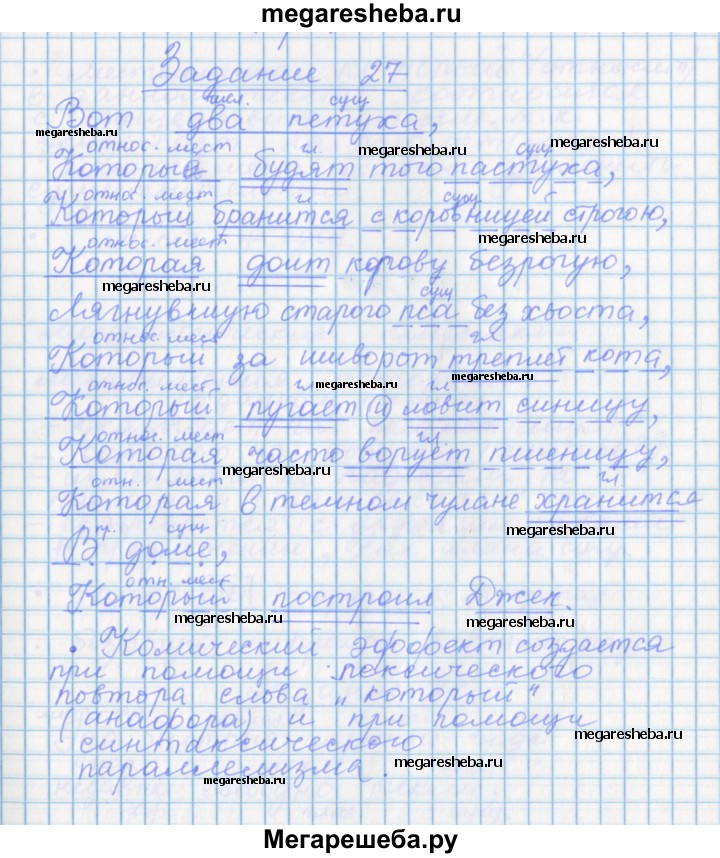 megaresheba.ru
Задание 27
числ. сущ
Вот два петуха,
megaresheba.ru
относ. мест гл. сущ
Которые будят того пастуха,
megaresheba.ru
относ. мест гл сущ
Который бранится с коровницей строгою,
megaresheba.ru
относ. мест
Которая доит корову безрогую,
megaresheba.ru
сущ
Лягнувшую старого пса без хвоста,
megaresheba.ru
относ. мест гл
Который за шиворот треплет кота,
megaresheba.ru
относ. мест гл гл
Который пугает и ловит синицу,
megaresheba.ru
megaresheba.ru
относ. мест гл.
Которая часто ворует пшеницу,
megaresheba.ru
отн. мест гл
Которая в темном чулане хранится
megaresheba.ru
пр. сущ
В доме,
отн. мест
Который построил Джек.
megaresheba.ru
megaresheba.ru
Комический эффект создается
при помощи лексического
повтора слова „который“
(анафора) и при помощи
megaresheba.ru
синтаксического
параллелизма.
megaresheba.ru
megaresheba.ru
Мегарешеба.ру